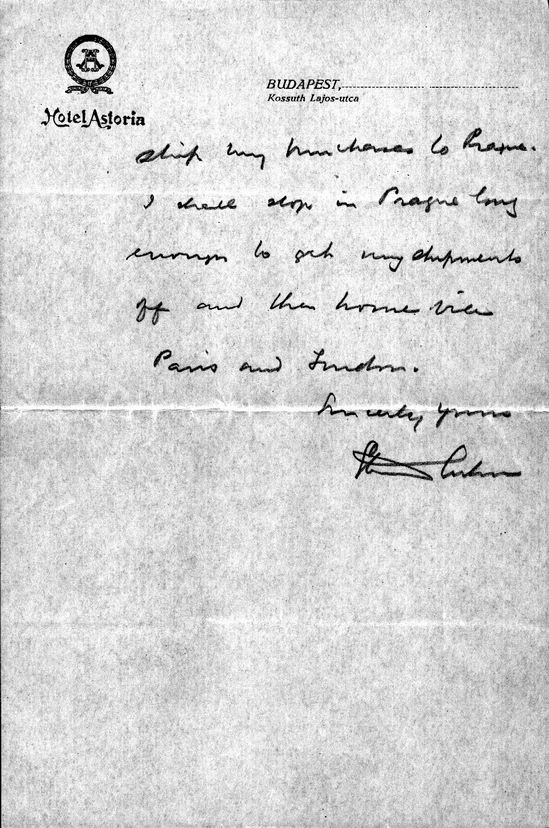 Hotel Astoria
BUDAPEST,
Kossuth Lajos-utca
ship my purchases to Prague.
I shall stop in Prague long
enough to get my shipments
off and then home via
Paris and London.
Sincerely yours